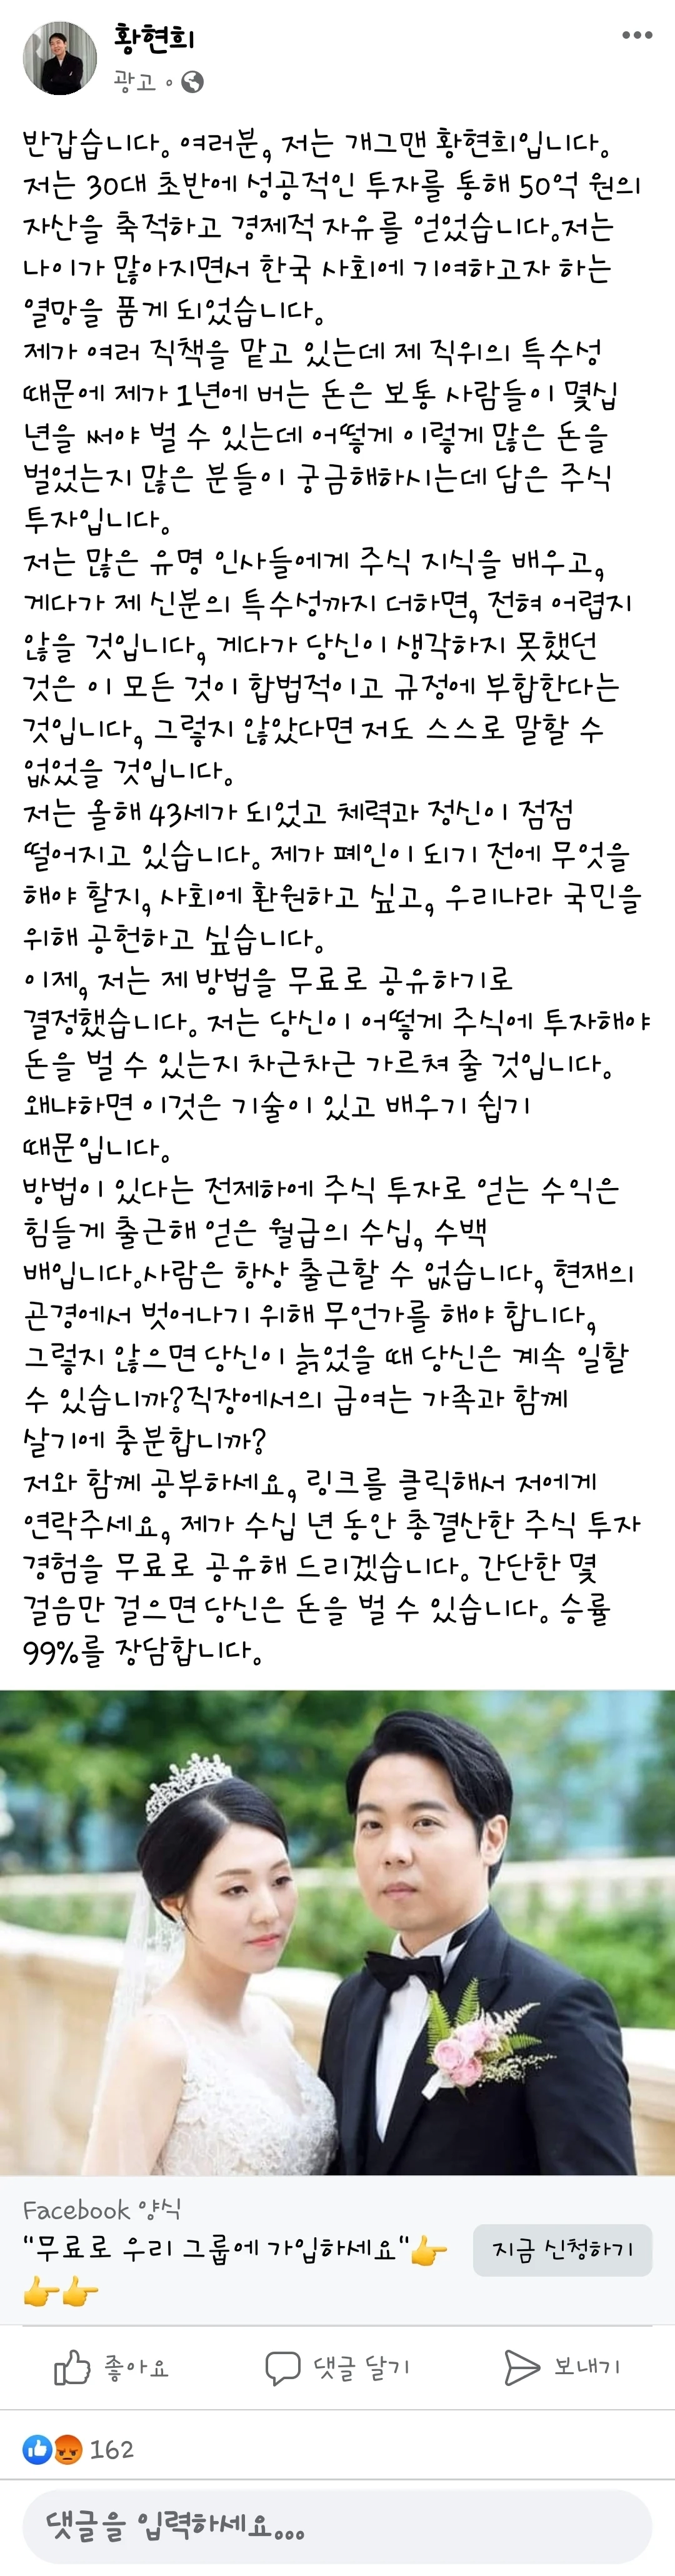 황현희
광고
반갑습니다. 여러분, 저는 개그맨 황현희입니다.
저는 30대 초반에 성공적인 투자를 통해 50억 원의
자산을 축적하고 경제적 자유를 얻었습니다.저는
나이가 많아지면서 한국 사회에 기여하고자 하는
열망을 품게 되었습니다.
제가 여러 직책을 맡고 있는데 제 직위의 특수성
때문에 제가 1년에 버는 돈은 보통 사람들이 몇십
년을 써야 벌 수 있는데 어떻게 이렇게 많은 돈을
벌었는지 많은 분들이 궁금해하시는데 답은 주식
투자입니다.
저는 많은 유명 인사들에게 주식 지식을 배우고,
게다가 제 신분의 특수성까지 더하면, 전혀 어렵지
않을 것입니다, 게다가 당신이 생각하지 못했던
것은 이 모든 것이 합법적이고 규정에 부합한다는
것입니다, 그렇지 않았다면 저도 스스로 말할 수
없었을 것입니다.
저는 올해 43세가 되었고 체력과 정신이 점점
떨어지고 있습니다. 제가 폐인이 되기 전에 무엇을
해야 할지, 사회에 환원하고 싶고, 우리나라 국민을
위해 공헌하고 싶습니다.
이제, 저는 제 방법을 무료로 공유하기로
결정했습니다. 저는 당신이 어떻게 주식에 투자해야
돈을 벌 수 있는지 차근차근 가르쳐 줄 것입니다.
왜냐하면 이것은 기술이 있고 배우기 쉽기
때문입니다.
방법이 있다는 전제하에 주식 투자로 얻는 수익은
힘들게 출근해 얻은 월급의 수십, 수백
배입니다.사람은 항상 출근할 수 없습니다, 현재의
곤경에서 벗어나기 위해 무언가를 해야 합니다,
그렇지 않으면 당신이 늙었을 때 당신은 계속 일할
수 있습니까?직장에서의 급여는 가족과 함께
살기에 충분합니까?
저와 함께 공부하세요, 링크를 클릭해서 저에게
연락주세요, 제가 수십 년 동안 총결산한 주식 투자
경험을 무료로 공유해 드리겠습니다. 간단한 몇
걸음만 걸으면 당신은 돈을 벌 수 있습니다. 승률
99%를 장담합니다.
Facebook 양식
"무료로 우리 그룹에 가입하세요"👉
👉👉
지금 신청하기
좋아요 댓글 달기 보내기
162
댓글을 입력하세요...